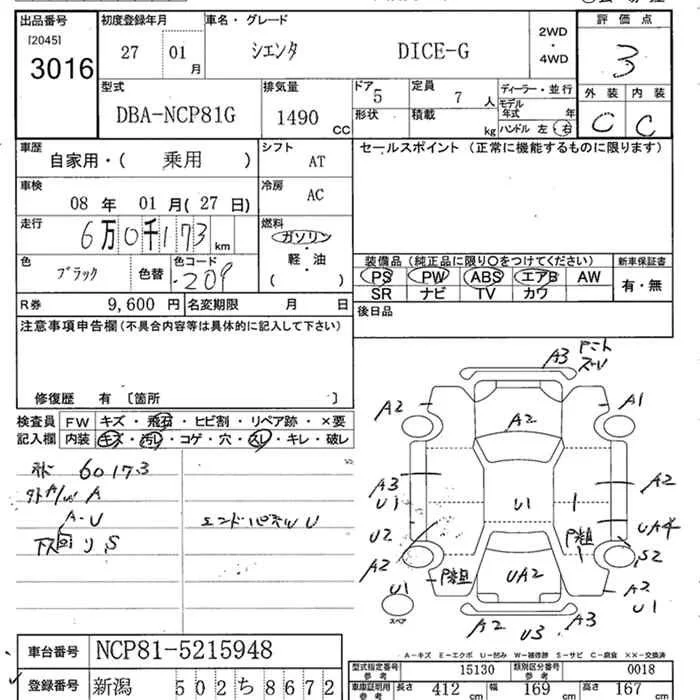 出品番号 初度登録年月 車名・グレード 2WD・4WD 評価点
[2045]
3016 27 01月 シエンタ DICE-G 3
型式 排気量 ドア 定員 ディーラー・並行 外装 内装
DBA-NCP81G 1490 CC 5 7人 モデル年式 年 C C
形状 積載 kg ハンドル 左・右
車歴 シフト セールスポイント (正常に機能するものに限ります)
自家用・( 乗用 ) AT
車検 冷房
08 年 01 月( 27 日) AC
走行 燃料
6万0千173 km ガソリン・軽・油 ( )
色 色替 色コード
ブラック 209
装備品 (純正品に限り○をつけてください) 新車保証書
PS PW ABS エアB AW 有・無
SR ナビ TV カワ
R券 9,600 円 名変期限 月 日 後日品
注意事項申告欄(不具合内容等は具体的に記入して下さい)
修復歴 有 〔箇所 〕
検査員記入欄 FW キズ・飛石・ヒビ割・リペア跡・×要
内装 キズ・汚レ・コゲ・穴・スレ・キレ・破レ
60173
A
A-U エンドパネル U
下回り S
A3
A2 A2 A1
A3 U1 U1 A2
U2 UA4
A2 P雑 P雑 S2
U1 UA2 A2 U1
スペア
A2 U3 A3
A-キズ E-エクボ U-凹み W-補修跡 S-サビ C-腐食 ××-交換済
車台番号 NCP81-5215948
型式指定番号 参考 15130 類別区分番号 参考 0018
登録番号 新潟 502ち8672
車庫証明用 参考 長さ 412 cm 幅 169 cm 高さ 167 cm